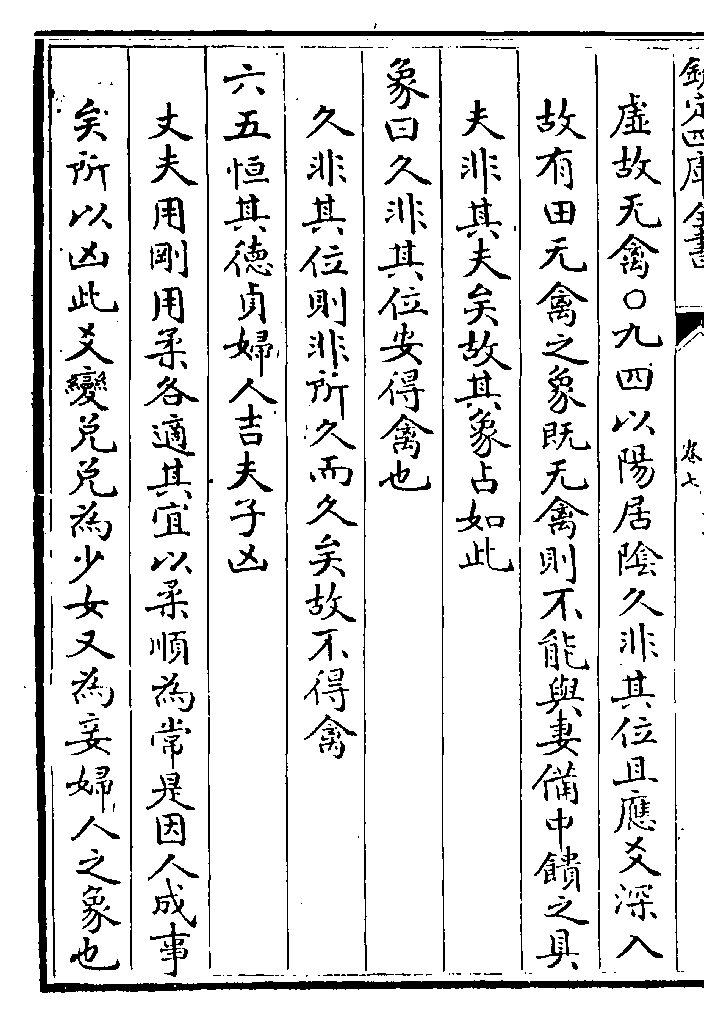 欽定四庫全書
卷七
虛故无禽〇九四以陽居陰久非其位且應爻深入
故有田无禽之象既无禽則不能與妻備中饋之具
夫非其夫矣故其象占如此
象曰久非其位安得禽也
久非其位則非所久而久矣故不得禽
六五恒其德貞婦人吉夫子凶
丈夫用剛用柔各適其宜以柔順為常是因人成事
矣所以凶此爻變兌兌為少女又為妾婦人之象也